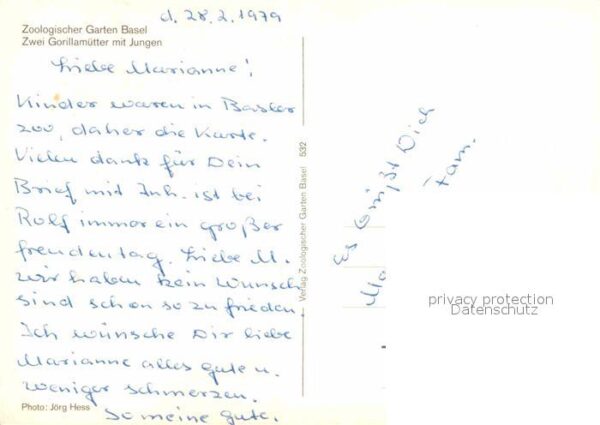 d. 28.2.1979
Zoologischer Garten Basel
Zwei Gorillamütter mit Jungen
Liebe Marianne!
Kinder waren in Basler
zoo, daher die Karte.
Vielen dank für Dein
Brief mit Inh. ist bei
Rolf immer ein großer
freudentag. Liebe M.
wir haben kein Wunsch
sind schon so zu frieden
Ich wünsche Dir liebe
Marianne alles gute u.
weniger schmerzen.
So meine gute.
Photo: Jörg Hess
Verlag Zoologischer Garten Basel 532
Es grüßt Dich
Fam.
Ma
privacy protection
Datenschutz